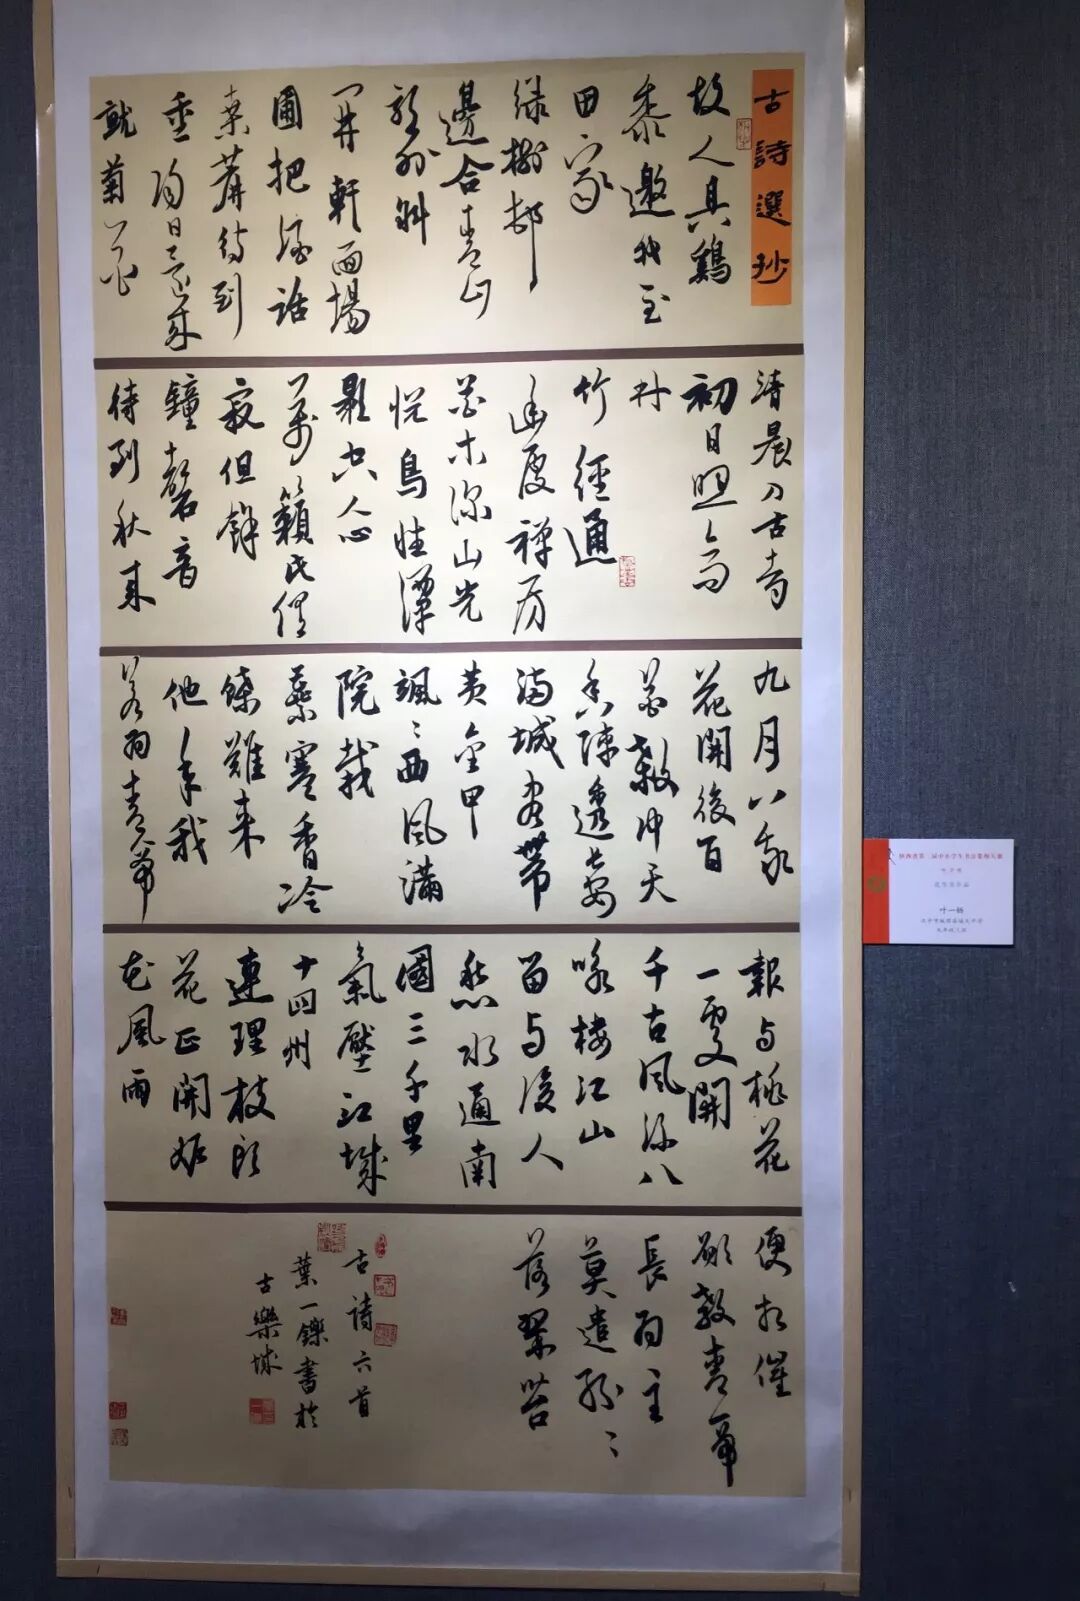 古詩選抄
故人具鷄
黍邀我至
田家
綠樹村
邊合青山
郭外斜
開軒面場
圃把酒話
桑麻待到
重陽日還來
就菊花
清晨入古寺
初日照高
林
竹徑通
幽處禪房
花木深山光
悅鳥性潭
影空人心
萬籟此俱
寂但餘
鐘磬音
待到秋來
九月八我
花開後百
花殺沖天
香陣透長安
滿城盡帶
黃金甲
颯〻西風滿
院栽
蕊寒香冷
蝶難來
他年我
若為青帝
報與桃花
一處開
千古風流八
詠樓江山
留與後人
愁水通南
國三千里
氣壓江城
十四州
連理枝頭
花正開妒
花風雨
便相催
願教青帝
長為主
莫遣紛〻
落翠苔
古詩六首
葉一鑠書於
古樂城